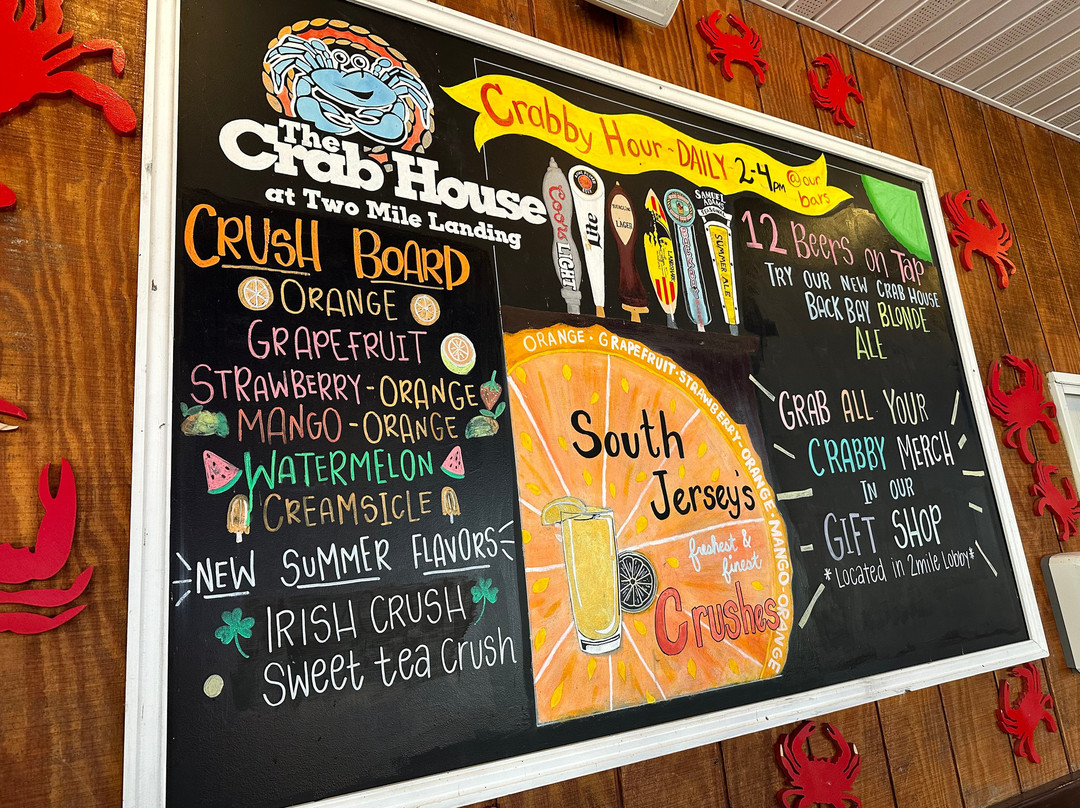 The
Crab House
at Two Mile Landing
Crabby Hour - DAILY 2-4PM @ our bars
CRUSH BOARD
ORANGE
GRAPEFRUIT
STRAWBERRY-ORANGE
MANGO-ORANGE
WATERMELON
CREAMSICLE
NEW SUMMER FLAVORS
IRISH CRUSH
Sweet tea Crush
Coors LIGHT
Lite
LAGER
LANDSHARK
SAMUEL ADAMS
SUMMER ALE
ORANGE · GRAPEFRUIT · STRAWBERRY-ORANGE MANGO ORANGE
South
Jersey's
freshest &
finest
Crushes
12 Beers on Tap
TRY OUR NEW CRAB HOUSE
BACK BAY BLONDE
ALE
GRAB ALL YOUR
CRABBY MERCH
IN OUR
GIFT SHOP
*Located in 2mile Lobby*